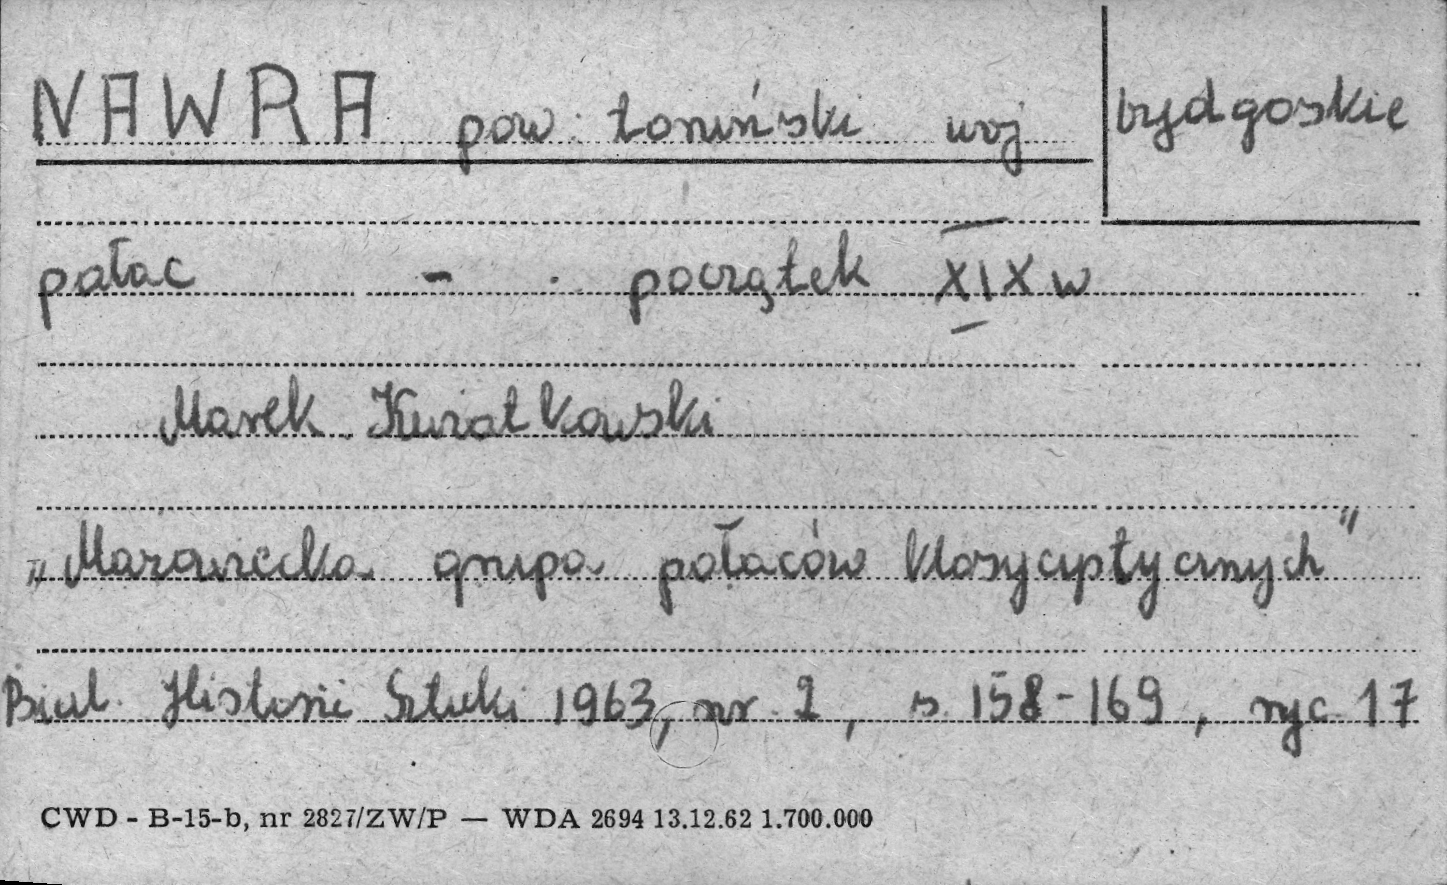 NAWRA pow. toruński woj bydgoskie
pałac - początek XIX w
Marek Kwiatkowski
„Mazowiecka grupa pałaców klasycystycznych"
Biul. Historii Sztuki 1963, nr. 2, s. 158-169, ryc. 17
CWD - B-15-b, nr 2827/ZW/P — WDA 2694 13.12.62 1.700.000